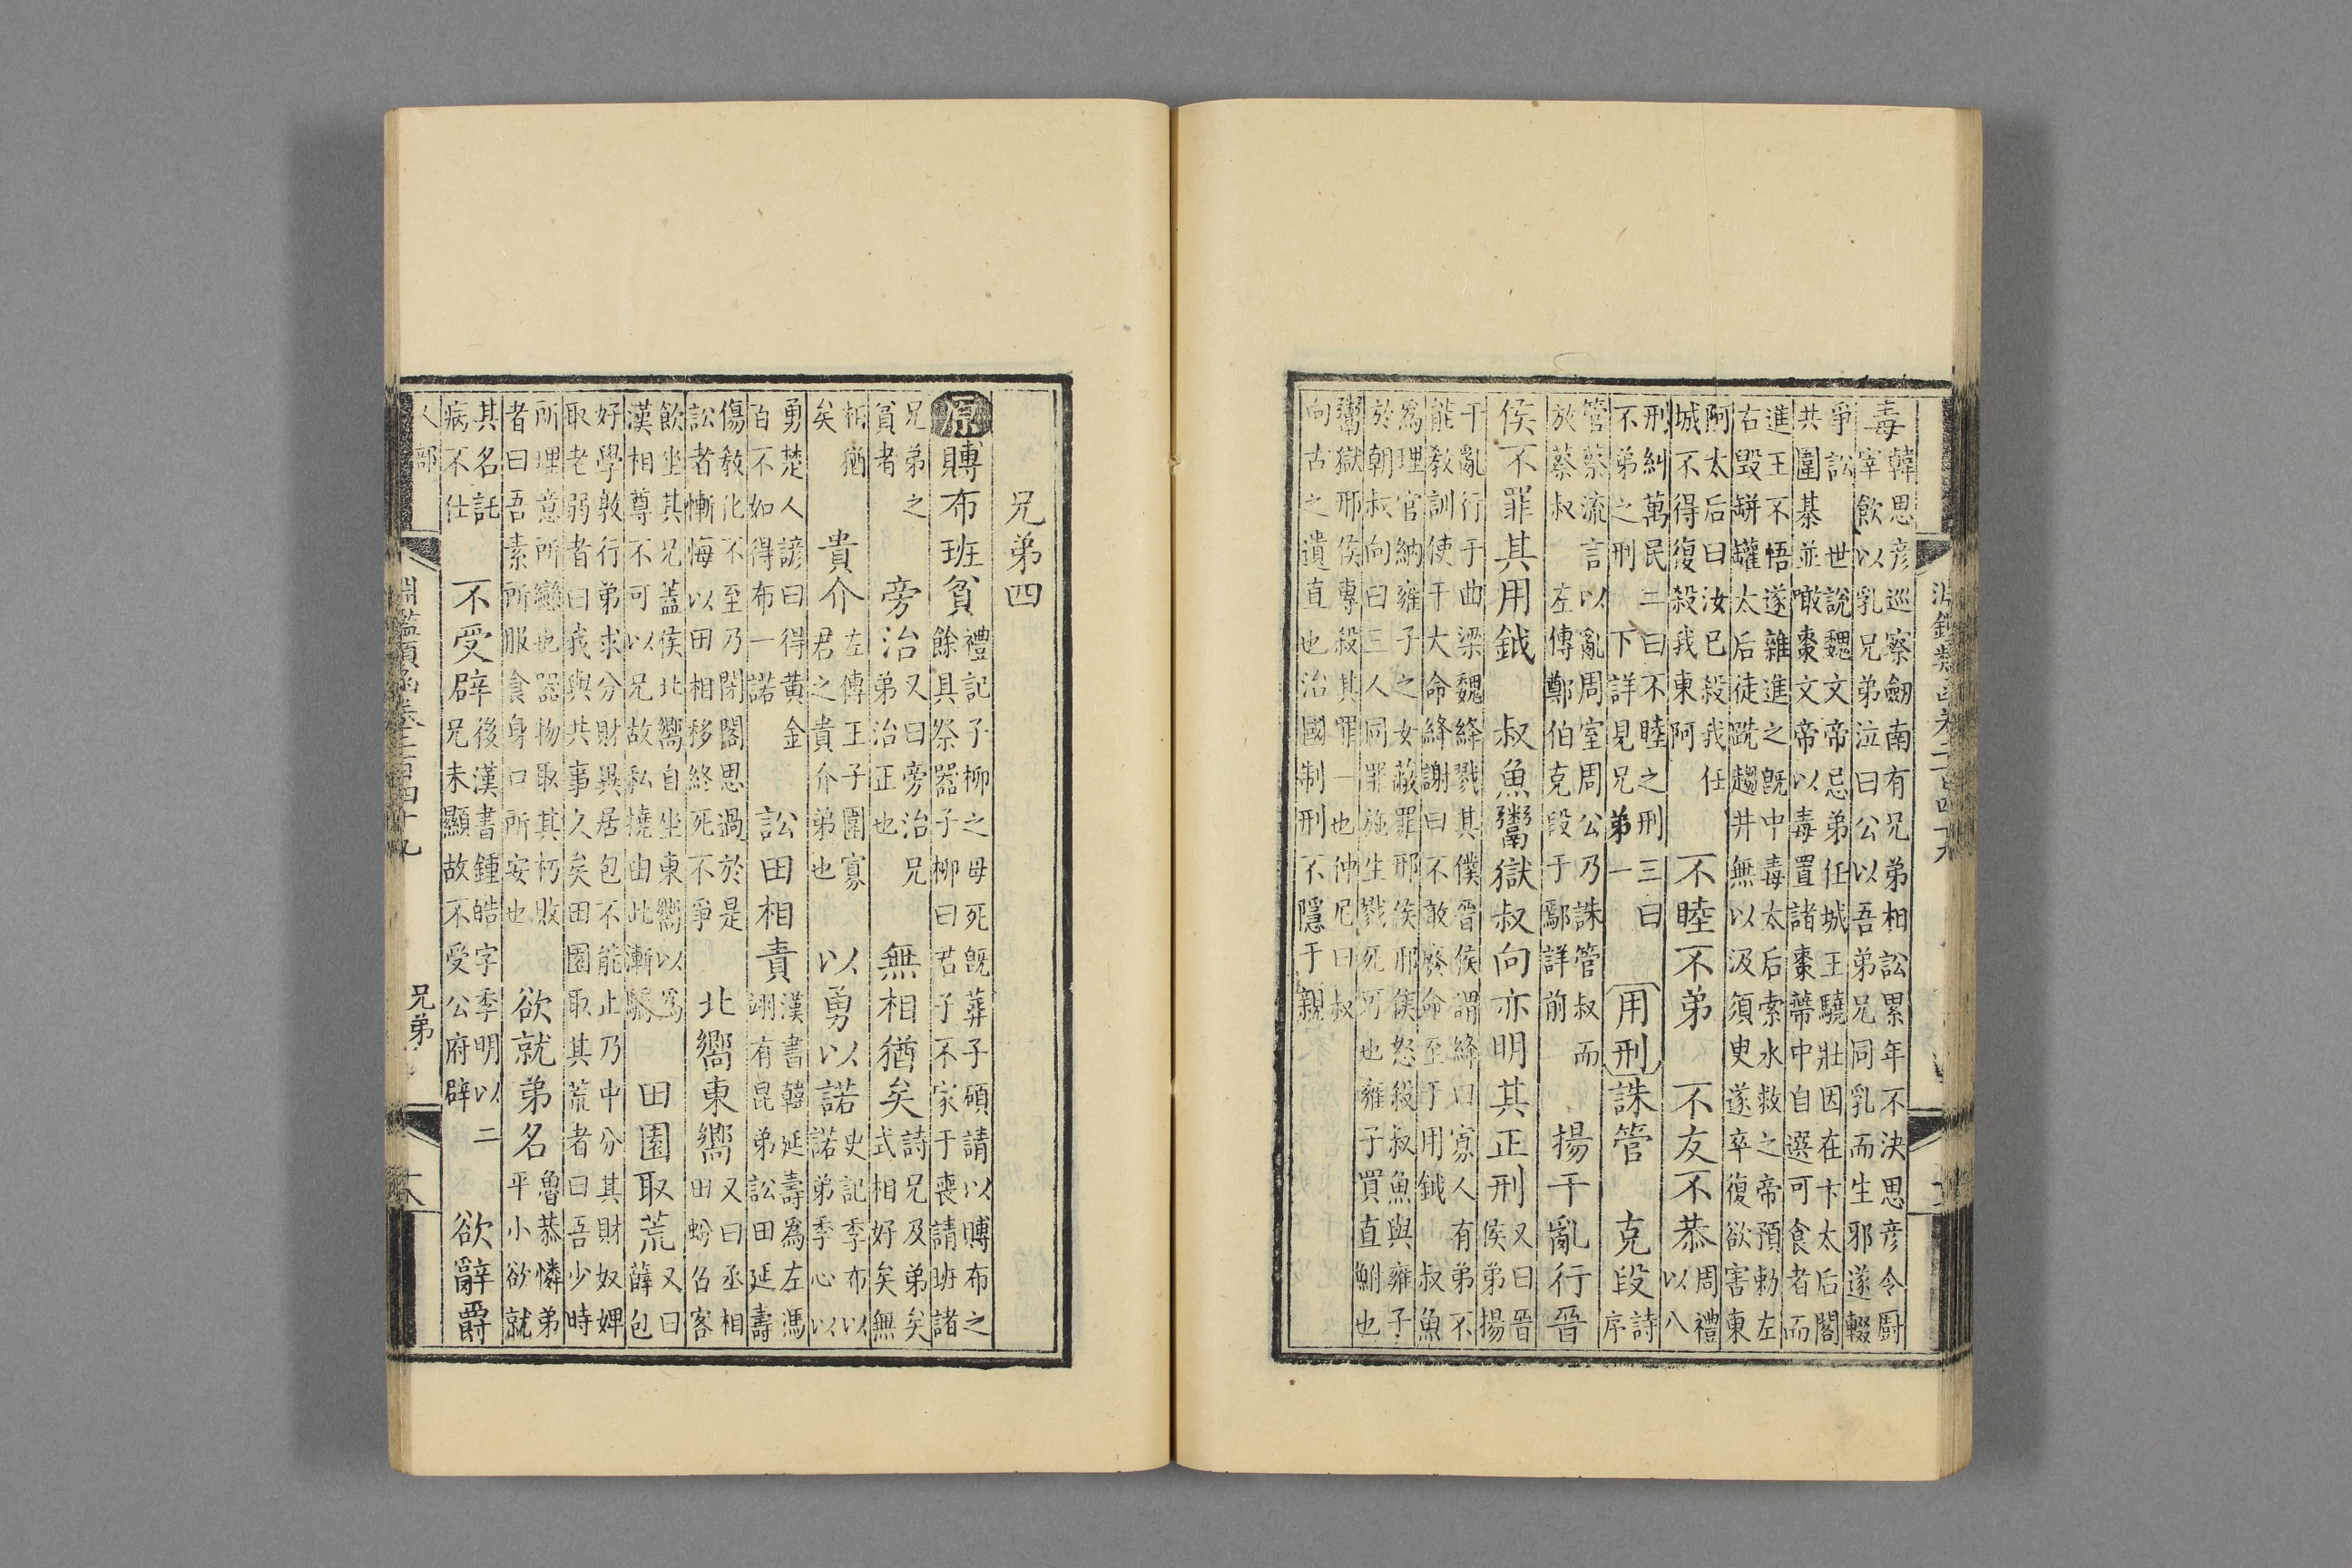 淵鑑類函卷二百四十九
毒韓思彦巡察劒南有兄弟相訟累年不決思彦令厨
宰飲以乳兄弟泣曰公以吾弟兄同乳而生邪遂輟
爭訟 世說魏文帝忌弟任城王驍壯因在卞太后閤
共圍棊並噉棗文帝以毒置諸棗蔕中自選可食者而
進王不悟遂雜進之既中毒太后索水救之帝預勅左
右毀缾罐太后徒跣趨井無以汲須臾遂卒復欲害東
阿太后曰汝已殺我任
城不得復殺我東阿 不睦不弟 不友不恭周禮
以八
刑糾萬民二曰不睦之刑三曰
不弟之刑 下詳見兄弟一 用刑 誅管 克段詩
序
管蔡流言以亂周室周公乃誅管叔而
放蔡叔 左傳鄭伯克段于鄢詳前 揚干亂行晉
侯不罪其用鉞 叔魚鬻獄叔向亦明其正刑又曰晉
侯弟揚
干亂行于曲梁魏絳戮其僕晉侯謂絳曰寡人有弟不
能教訓使干大命絳謝曰不敢廢命至于用鉞 叔魚
爲理官納雍子之女蔽罪邢侯邢侯怒殺叔魚與雍子
於朝叔向曰三人同罪施生戮死可也雍子買直鮒也
鬻獄邢侯專殺其罪一也仲尼曰叔
向古之遺直也治國制刑不隱于親
兄弟四
原賻布班貧禮記子柳之母死既葬子碩請以賻布之
餘具祭器子柳曰君子不家于喪請班諸
兄弟之
貧者 旁治又曰旁治兄
弟治正也 無相猶矣詩兄及弟矣
式相好矣無
相猶
矣 貴介左傳王子圍寡
君之貴介弟也 以勇以諾史記季布以
諾弟季心以
勇楚人諺曰得黄金
百不如得布一諾 訟田相責漢書韓延壽爲左馮
翊有昆弟訟田延壽
傷教化不至乃閉閤思過於是
訟者慚悔以田相移終死不爭 北嚮東嚮又曰丞相
田蚡召客
飲坐其兄蓋侯北嚮自坐東嚮以爲
漢相尊不可以兄故私撓由此漸驕 田園取荒又曰
薛包
好學敦行弟求分財異居包不能止乃中分其財奴婢
取老弱者曰我與共事久矣田園取其荒者曰吾少時
所理意所戀也器物取其朽敗
者曰吾素所服食身口所安也 欲就弟名魯恭憐弟
平小欲就
其名託
病不仕 不受辟後漢書鍾皓字季明以二
兄未顯故不受公府辟 欲辭爵
人部
淵鑑類函卷二百四十九
兄弟